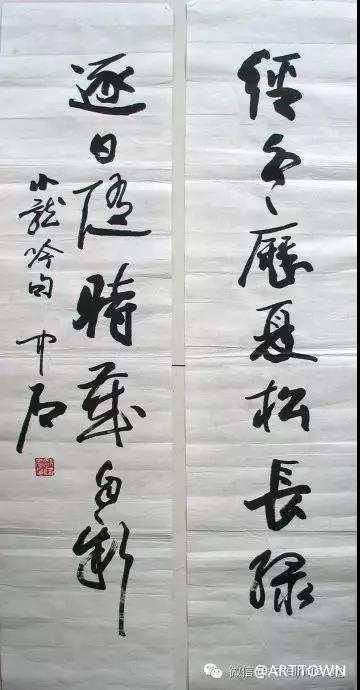 經冬歷夏松長綠
逐日隨時歲自新
小龍吟句 中石
微信
@ARTTOWN